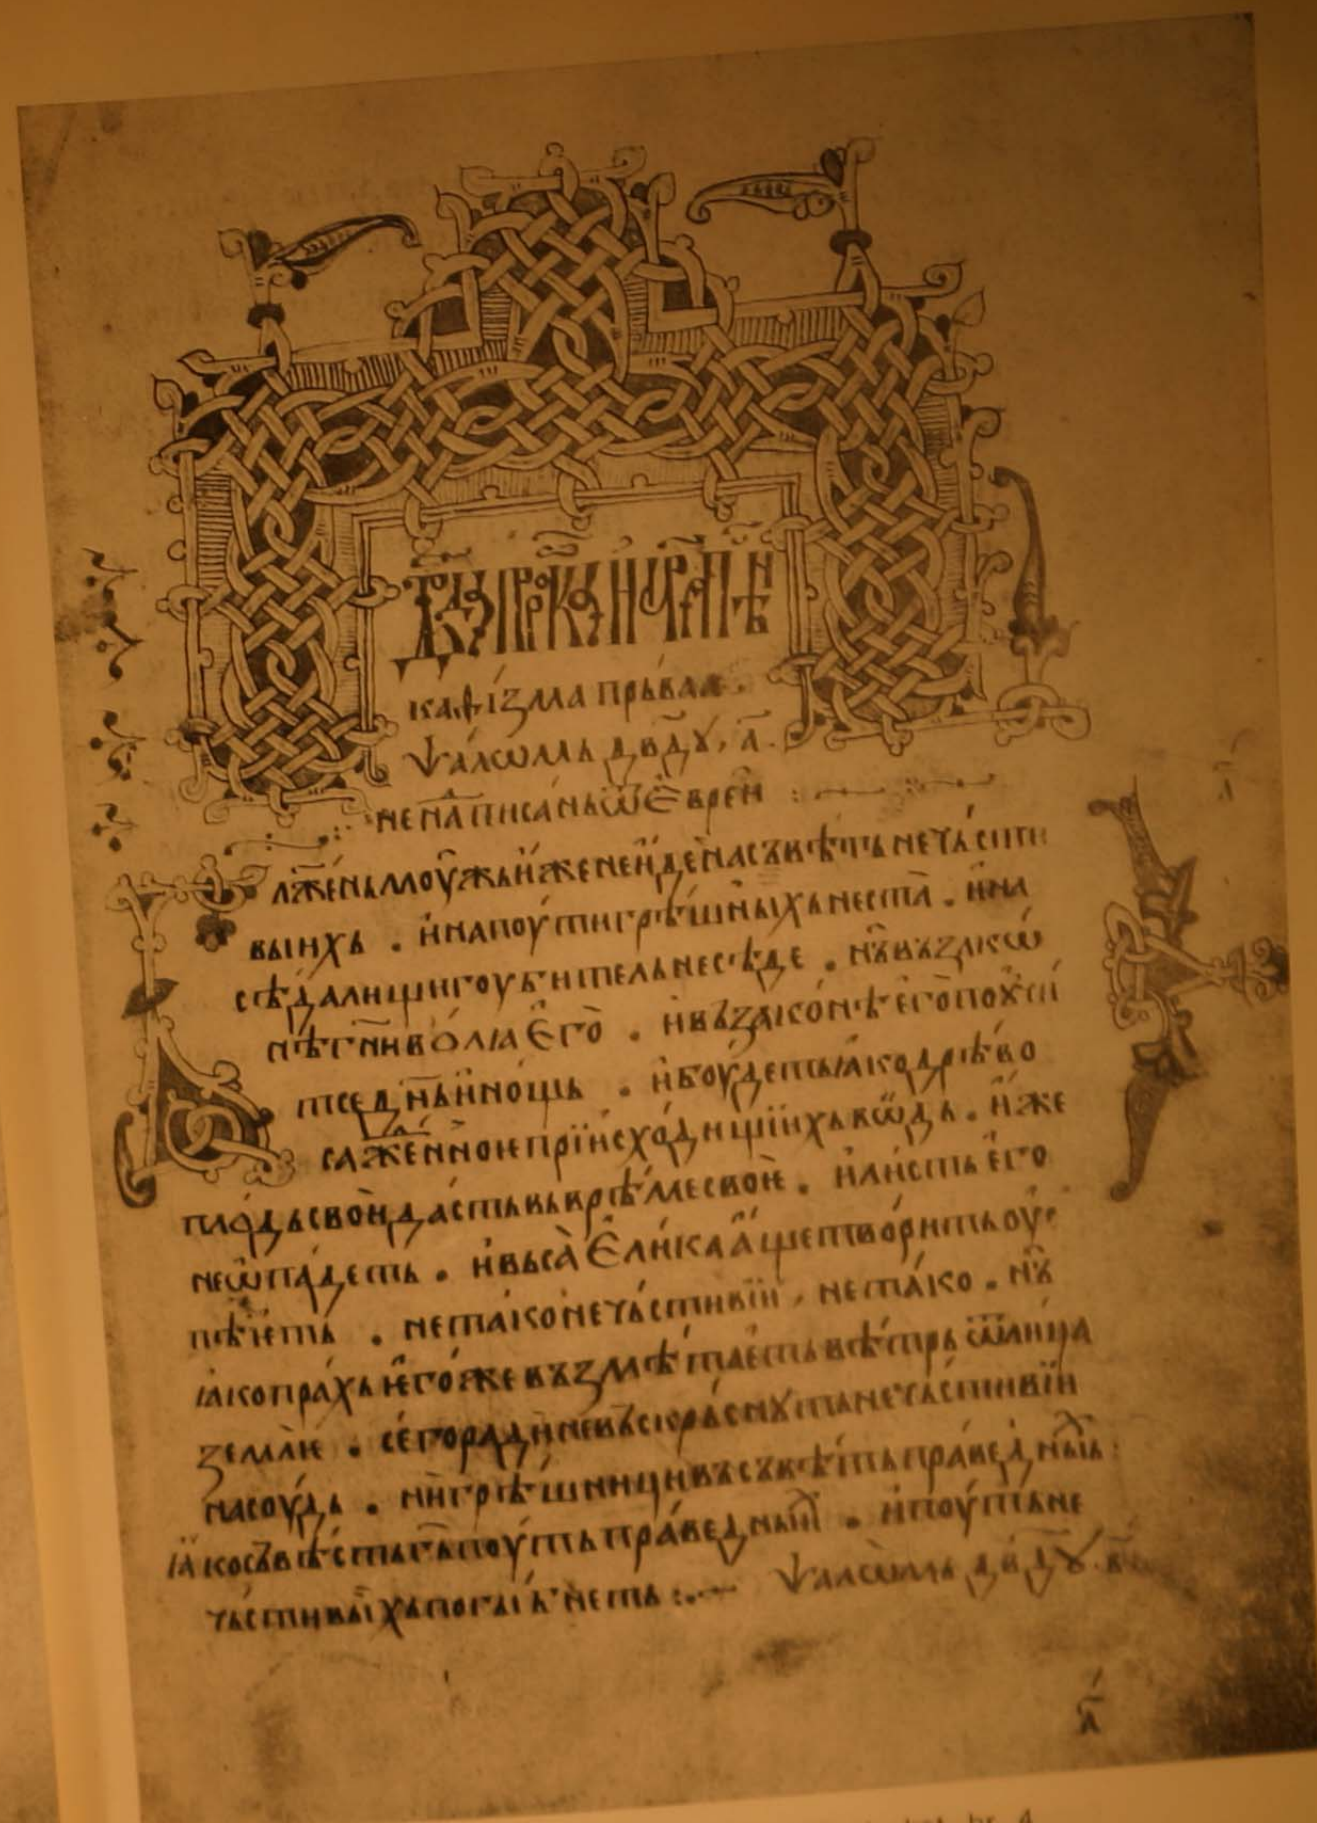 каѳізма прьваа .
Ѱалѡмь дв҃ду , а҃ .
не написань ѿ Еврей
лженьмоужьижененденасъвѣтьнечьсти
выихь . инапоутигрѣшныхьнеста . ина
сѣдалищигоубительнеседе . нѫвъзакѡ
нѣгн҃ивꙍлꙗего . ивъзаконѣегопоꙋчи
тседн҃ьинощь . ибоудетьꙗкодрѣво
сажⷣеноиепрїисходищїихьвѡдь . иже
плодьсвоидастьвьврѣмесвоѥ . илистьего
неѿпадеть . ивьсаЕликаащетворитьоус
пѣѥть . нетаконечьстивїи , нетако . нѫ
ꙗкопрахьѥгожевъзмѣтаетьвѣтрьѿлица
землѥ . сегорадиневъскрьснутьнечьстивїи
насоудь . нигрѣшницивъсъвѣтьправеднⷯыь
ꙗкосъвѣстьг҃ьпоутьправеднⷯыи . ипоутьне
чьстивыихьпогыбнеть :~ Ѱалѡмь дв҃дꙋ . в҃
а҃
br. 4